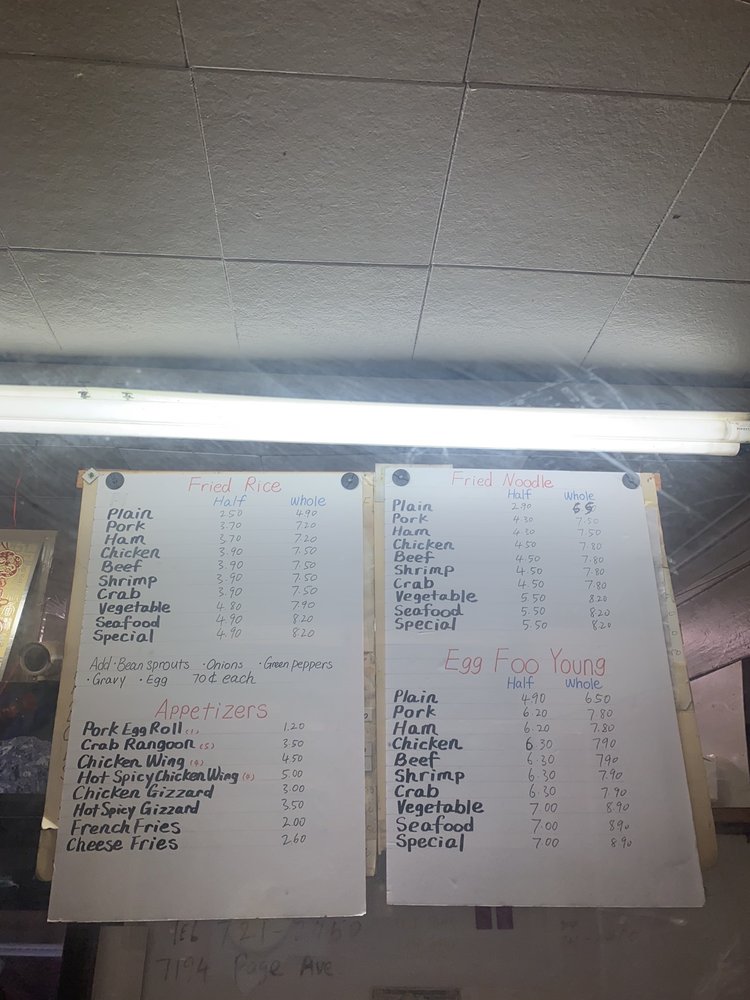 Fried Rice
Half Whole
Plain 2.50 4.90
Pork 3.70 7.20
Ham 3.70 7.20
Chicken 3.90 7.50
Beef 3.90 7.50
Shrimp 3.90 7.50
Crab 3.90 7.50
Vegetable 4.80 7.90
Seafood 4.90 8.20
Special 4.90 8.20
Add · Bean sprouts · Onions · Green peppers
· Gravy · Egg 70¢ each
Appetizers
Pork Egg Roll (1) 1.20
Crab Rangoon (5) 3.50
Chicken Wing (4) 4.50
Hot Spicy Chicken Wing (4) 5.00
Chicken Gizzard 3.00
Hot Spicy Gizzard 3.50
French Fries 2.00
Cheese Fries 2.60
Fried Noodle
Half Whole
Plain 2.90
Pork 4.30 7.50
Ham 4.30 7.50
Chicken 4.50 7.80
Beef 4.50 7.80
Shrimp 4.50 7.80
Crab 4.50 7.80
Vegetable 5.50 8.20
Seafood 5.50 8.20
Special 5.50 8.20
Egg Foo Young
Half Whole
Plain 4.90 6.50
Pork 6.20 7.80
Ham 6.20 7.80
Chicken 6.30 7.90
Beef 6.30 7.90
Shrimp 6.30 7.90
Crab 6.30 7.90
Vegetable 7.00 8.90
Seafood 7.00 8.90
Special 7.00 8.90
7194 Page Ave